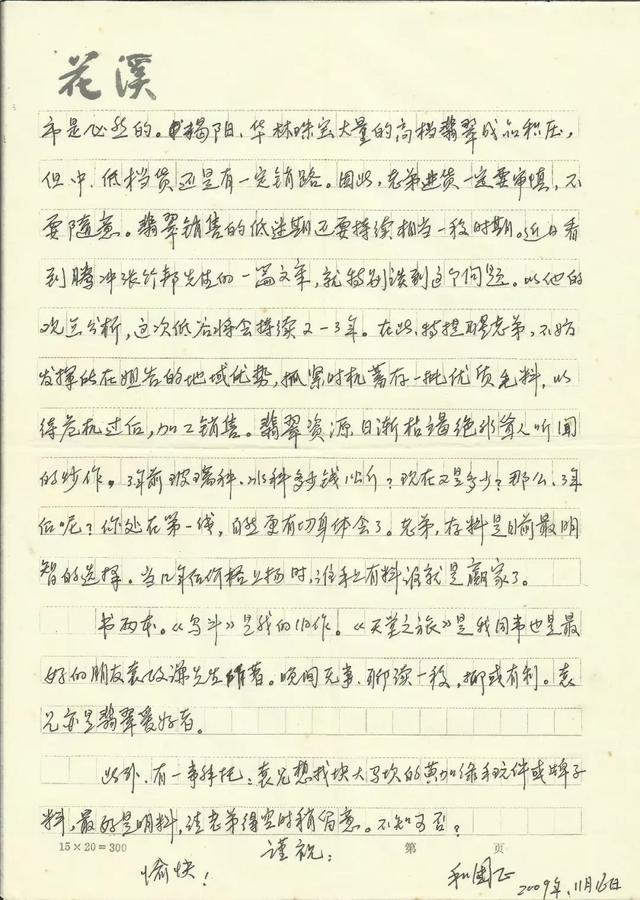 花溪
市是必然的。揭阳、华林珠宝大量的高档翡翠成品积压,
但中、低档货还是有一定销路。因此,老弟进货一定要审慎,不
要随意。翡翠销售的低迷期还要持续相当一段时期。近日看
到腾冲张竹邦先生的一篇文章,就特别谈到这个问题。以他的
观点分析,这次低谷将会持续2-3年。在此,特提醒老弟,不妨
发挥所在姐告的地域优势,抓紧时机蓄存一批优质毛料,以
待危机过后,加工销售。翡翠资源日渐枯竭绝非耸人听闻
的炒作。3年前玻璃种、冰种多少钱1公斤?现在又是多少?那么,3年
后呢?你处在第一线,自然更有切身体会了。老弟,存料是目前最明
智的选择。当几年后价格上扬时,谁手上有料谁就是赢家了。
书两本。《乌斗》是我的旧作。《天堂之旅》是我同事也是最
好的朋友袁政谦先生所著。晚间无事,聊读一段,抑或有利。袁
兄亦是翡翠爱好者。
此外,有一事拜托:袁兄想找块大马坎的黄加绿手玩件或牌子
料,最好是明料,请老弟得空时稍留意。不知可否?
15×20=300 第 页
谨祝:
愉快!
和国正
2009年11月16日